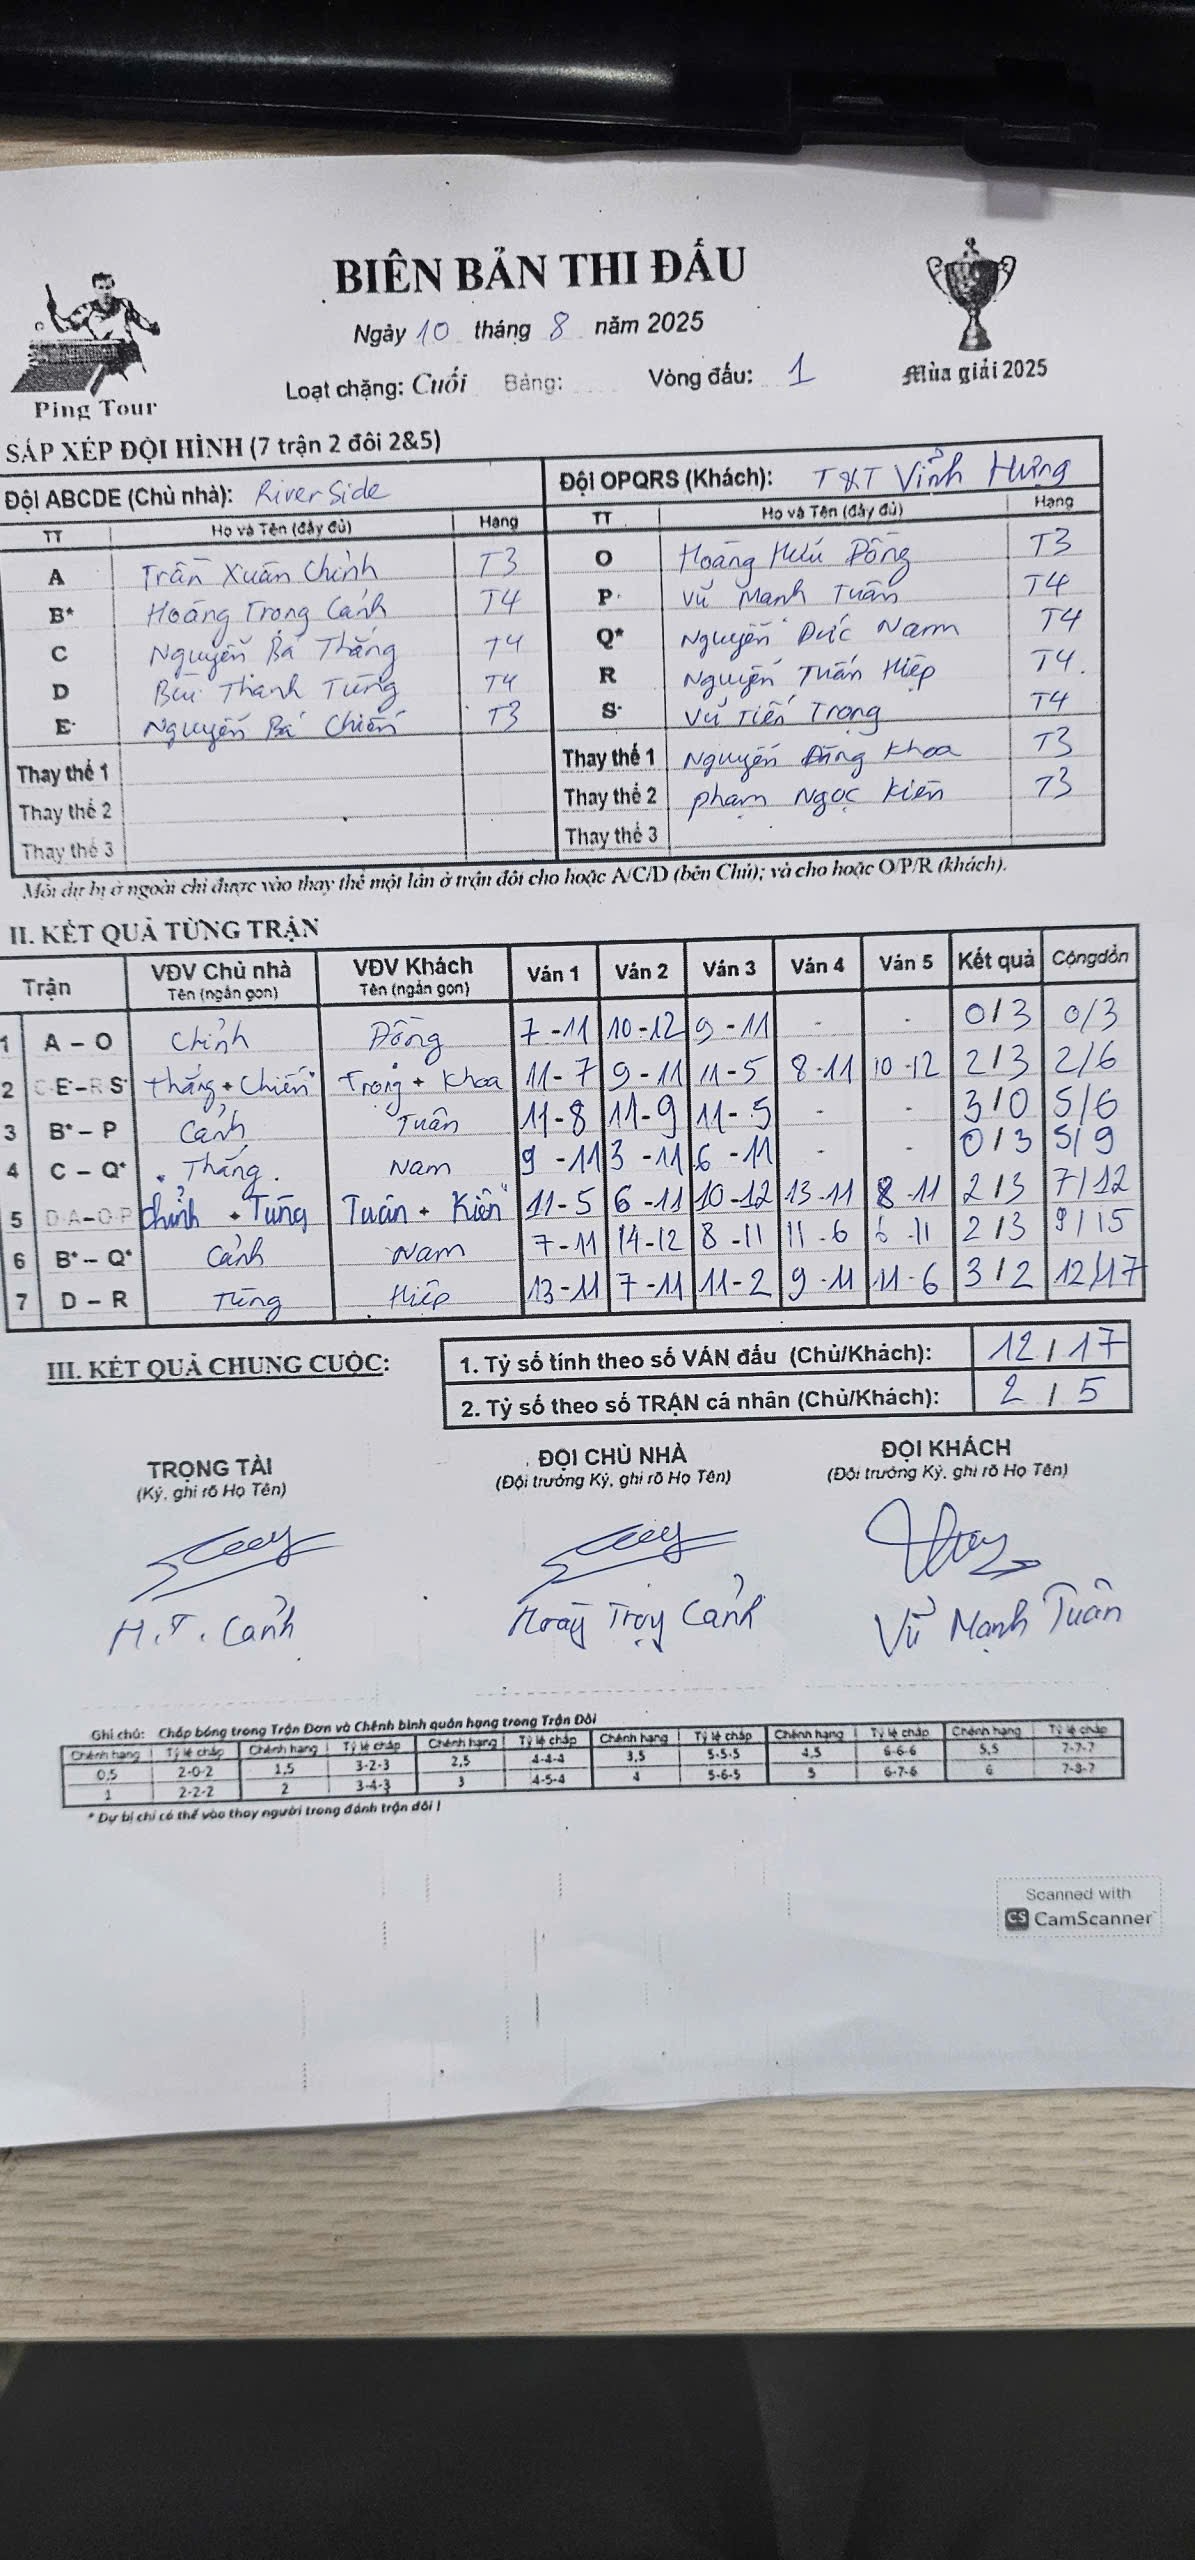 BIÊN BẢN THI ĐẤU
Ngày 10 tháng 8 năm 2025
Loạt chặng: Cuối Bảng: Vòng đấu: 1
Ping Tour
Mùa giải 2025
SẮP XẾP ĐỘI HÌNH (7 trận 2 đôi 2&5)
Đội ABCDE (Chủ nhà): RiverSide Đội OPQRS (Khách): T&T Vĩnh Hưng
TT Họ và Tên (đầy đủ) Hạng TT Họ và Tên (đầy đủ) Hạng
A Trần Xuân Chỉnh T3 O Hoàng Hữu Đồng T3
B* Hoàng Trọng Cảnh T4 P Vũ Mạnh Tuân T4
C Nguyễn Bá Thắng T4 Q* Nguyễn Đức Nam T4
D Bùi Thanh Tùng T4 R Nguyễn Tuấn Hiệp T4
E Nguyễn Bá Chiến T3 S Vũ Tiến Trọng T4
Thay thế 1 Thay thế 1 Nguyễn Đăng Khoa T3
Thay thế 2 Thay thế 2 Phạm Ngọc Kiên T3
Thay thế 3 Thay thế 3
Mỗi dự bị ở ngoài chỉ được vào thay thế một lần ở trận đôi cho hoặc A/C/D (bên Chủ); và cho hoặc O/P/R (khách).
II. KẾT QUẢ TỪNG TRẬN
Trận VĐV Chủ nhà Tên (ngắn gọn) VĐV Khách Tên (ngắn gọn) Ván 1 Ván 2 Ván 3 Ván 4 Ván 5 Kết quả Cộng dồn
1 A – O Chỉnh Đồng 7-11 10-12 9-11 - - 0/3 0/3
2 C·E–R·S Thắng + Chiến Trọng + Khoa 11-7 9-11 11-5 8-11 10-12 2/3 2/6
3 B* – P Cảnh Tuân 11-8 11-9 11-5 - - 3/0 5/6
4 C – Q* Thắng Nam 9-11 3-11 6-11 - - 0/3 5/9
5 D·A–O·P Chỉnh + Tùng Tuân + Kiên 11-5 6-11 10-12 13-11 8-11 2/3 7/12
6 B* – Q* Cảnh Nam 7-11 14-12 8-11 11-6 6-11 2/3 9/15
7 D – R Tùng Hiệp 13-11 7-11 11-2 9-11 11-6 3/2 12/17
III. KẾT QUẢ CHUNG CUỘC:
1. Tỷ số tính theo số VÁN đấu (Chủ/Khách): 12/17
2. Tỷ số theo số TRẬN cá nhân (Chủ/Khách): 2/5
TRỌNG TÀI ĐỘI CHỦ NHÀ ĐỘI KHÁCH
(Ký, ghi rõ Họ Tên) (Đội trưởng Ký, ghi rõ Họ Tên) (Đội trưởng Ký, ghi rõ Họ Tên)
H.T. Cảnh Hoàng Trọng Cảnh Vũ Mạnh Tuân
Ghi chú: Chấp bóng trong Trận Đơn và Chênh bình quân hạng trong Trận Đôi
Chênh hạng Tỷ lệ chấp Chênh hạng Tỷ lệ chấp Chênh hạng Tỷ lệ chấp Chênh hạng Tỷ lệ chấp Chênh hạng Tỷ lệ chấp Chênh hạng Tỷ lệ chấp
0,5 2-0-2 1,5 3-2-3 2,5 4-4-4 3,5 5-5-5 4,5 6-6-6 5,5 7-7-7
1 2-2-2 2 3-4-3 3 4-5-4 4 5-6-5 5 6-7-6 6 7-8-7
* Dự bị chỉ có thể vào thay người trong đánh trận đôi !
Scanned with
CS CamScanner